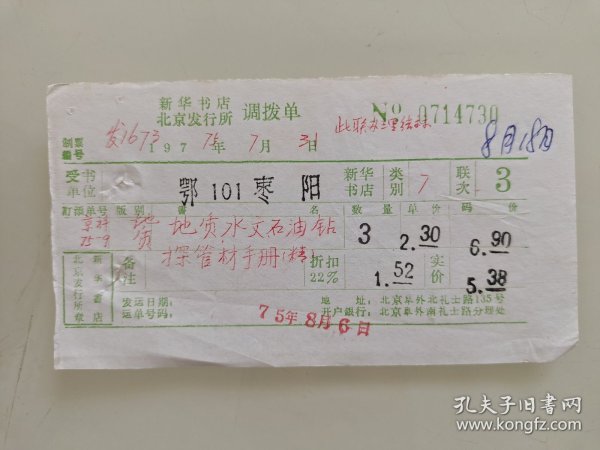 新华书店
北京发行所 调拨单
此联办理结
No 0714730
制票编号
发1673
1975年7月31日
8月18日
受书单位 鄂101枣 阳 新华书店 类别 7 联次 3
订额单号 版别 书 名 数量 单价 码 价
京科
75-9
地质 地质水文石油钻
探管材手册(精)
3 2.30 6.90
新华书店
北京发行所章
备注 折扣22% 1.52 实价 5.38
发运日期: 地 址: 北京阜外北礼士路135号
运单号码: 开户银行: 北京阜外南礼士路分理处
75年8月6日
孔夫子旧书网
www.kongfz.com